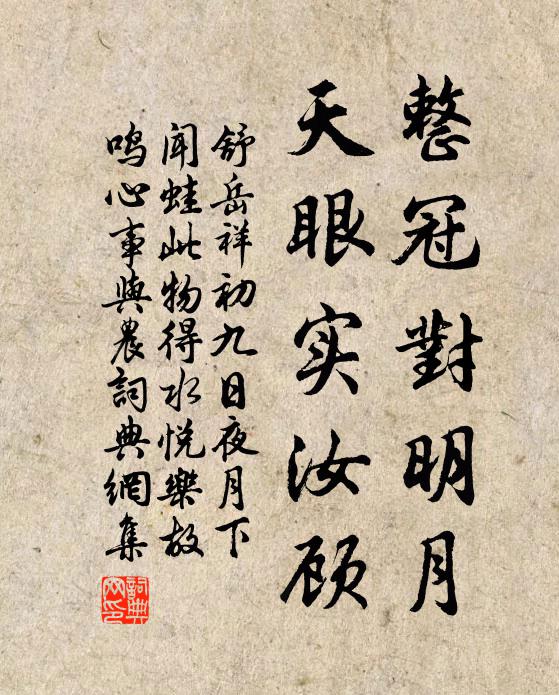 整冠對明月
天眼实汝顾
舒岳祥初九日夜月下
闻蛙此物得水悦樂故
鸣心事與農詞典網集
詞典网印